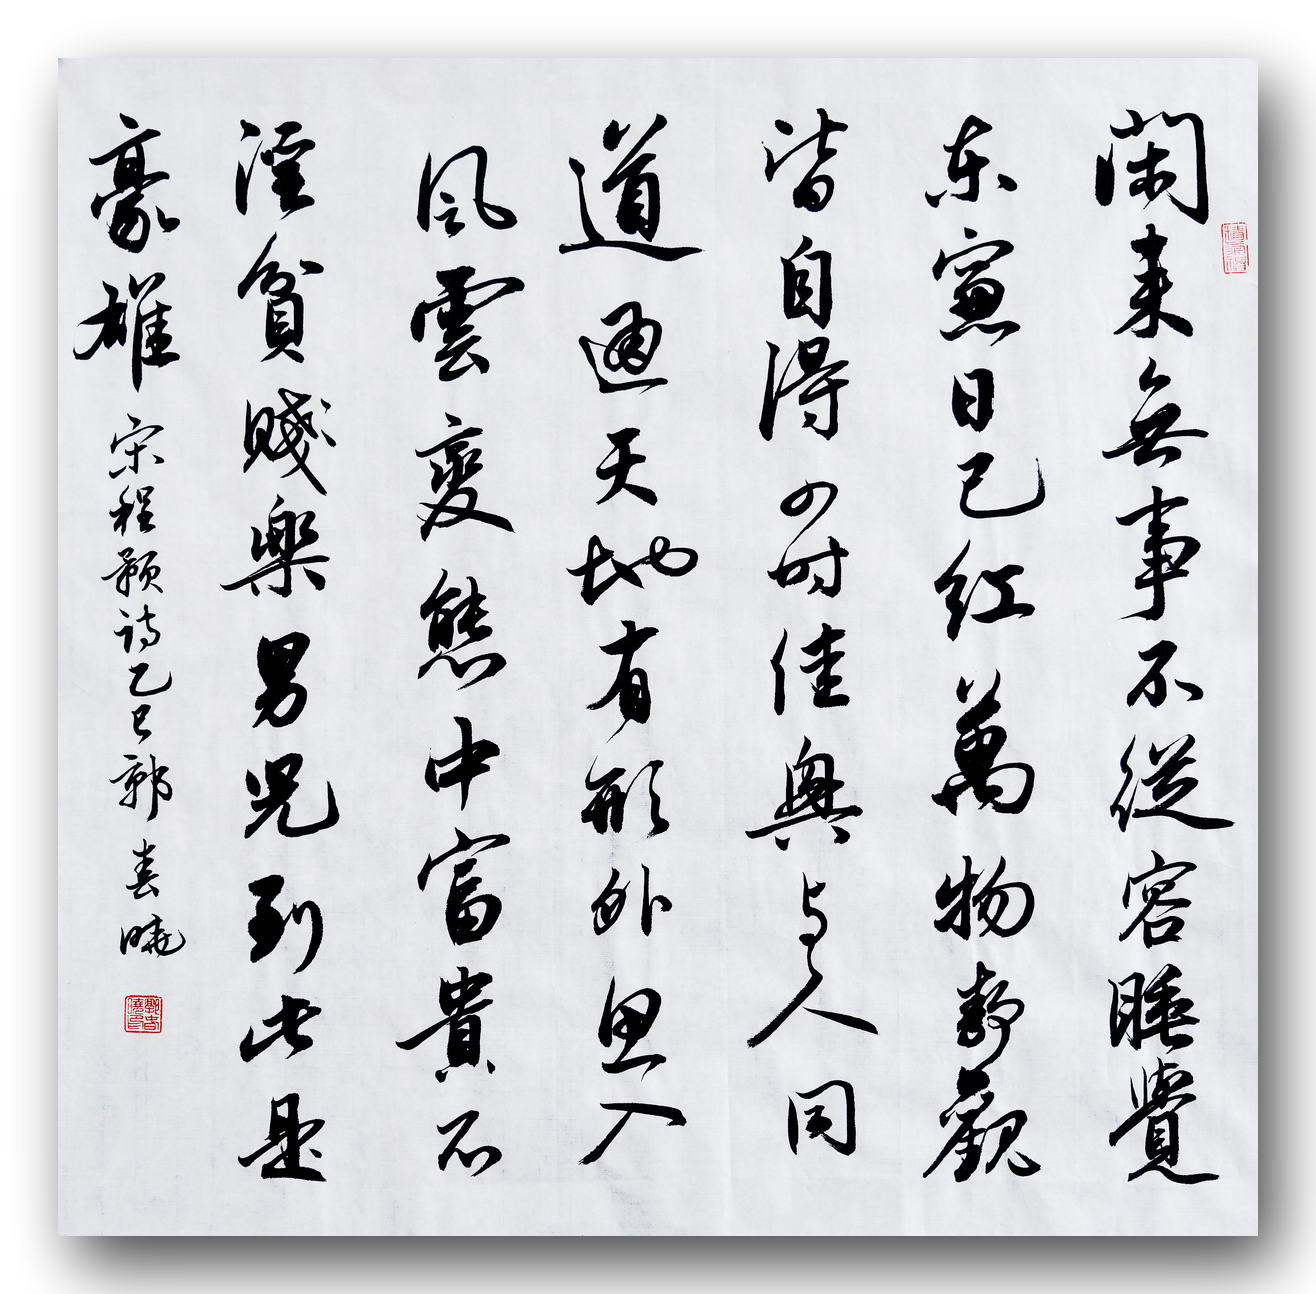 閑来無事不從容睡覺
东窻日已紅萬物静觀
皆自得四时佳興与人同
道通天地有形外思入
風雲變態中富貴不
淫貧賤樂男兒到此是
豪雄
宋程颢诗乙巳郭春曉
郭春曉印